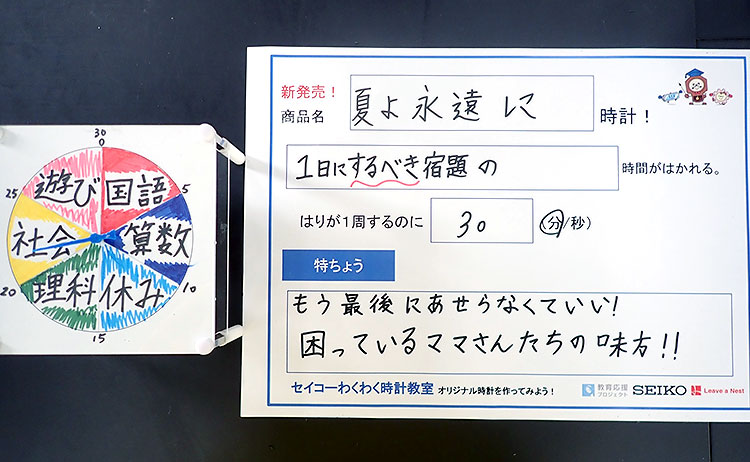 30
0
25
5
遊び 国語
社会 算数
20
10
理科 休み
15
新発売!
商品名
夏よ永遠に
時計!
1日にするべき宿題の
時間がはかれる。
はりが1周するのに
30
(分/秒)
特ちょう
もう最後にあせらなくていい!
困っているママさんたちの味方!!
セイコーわくわく時計教室 オリジナル時計を作ってみよう!
教育応援
プロジェクト
SEIKO
Leave a Nest